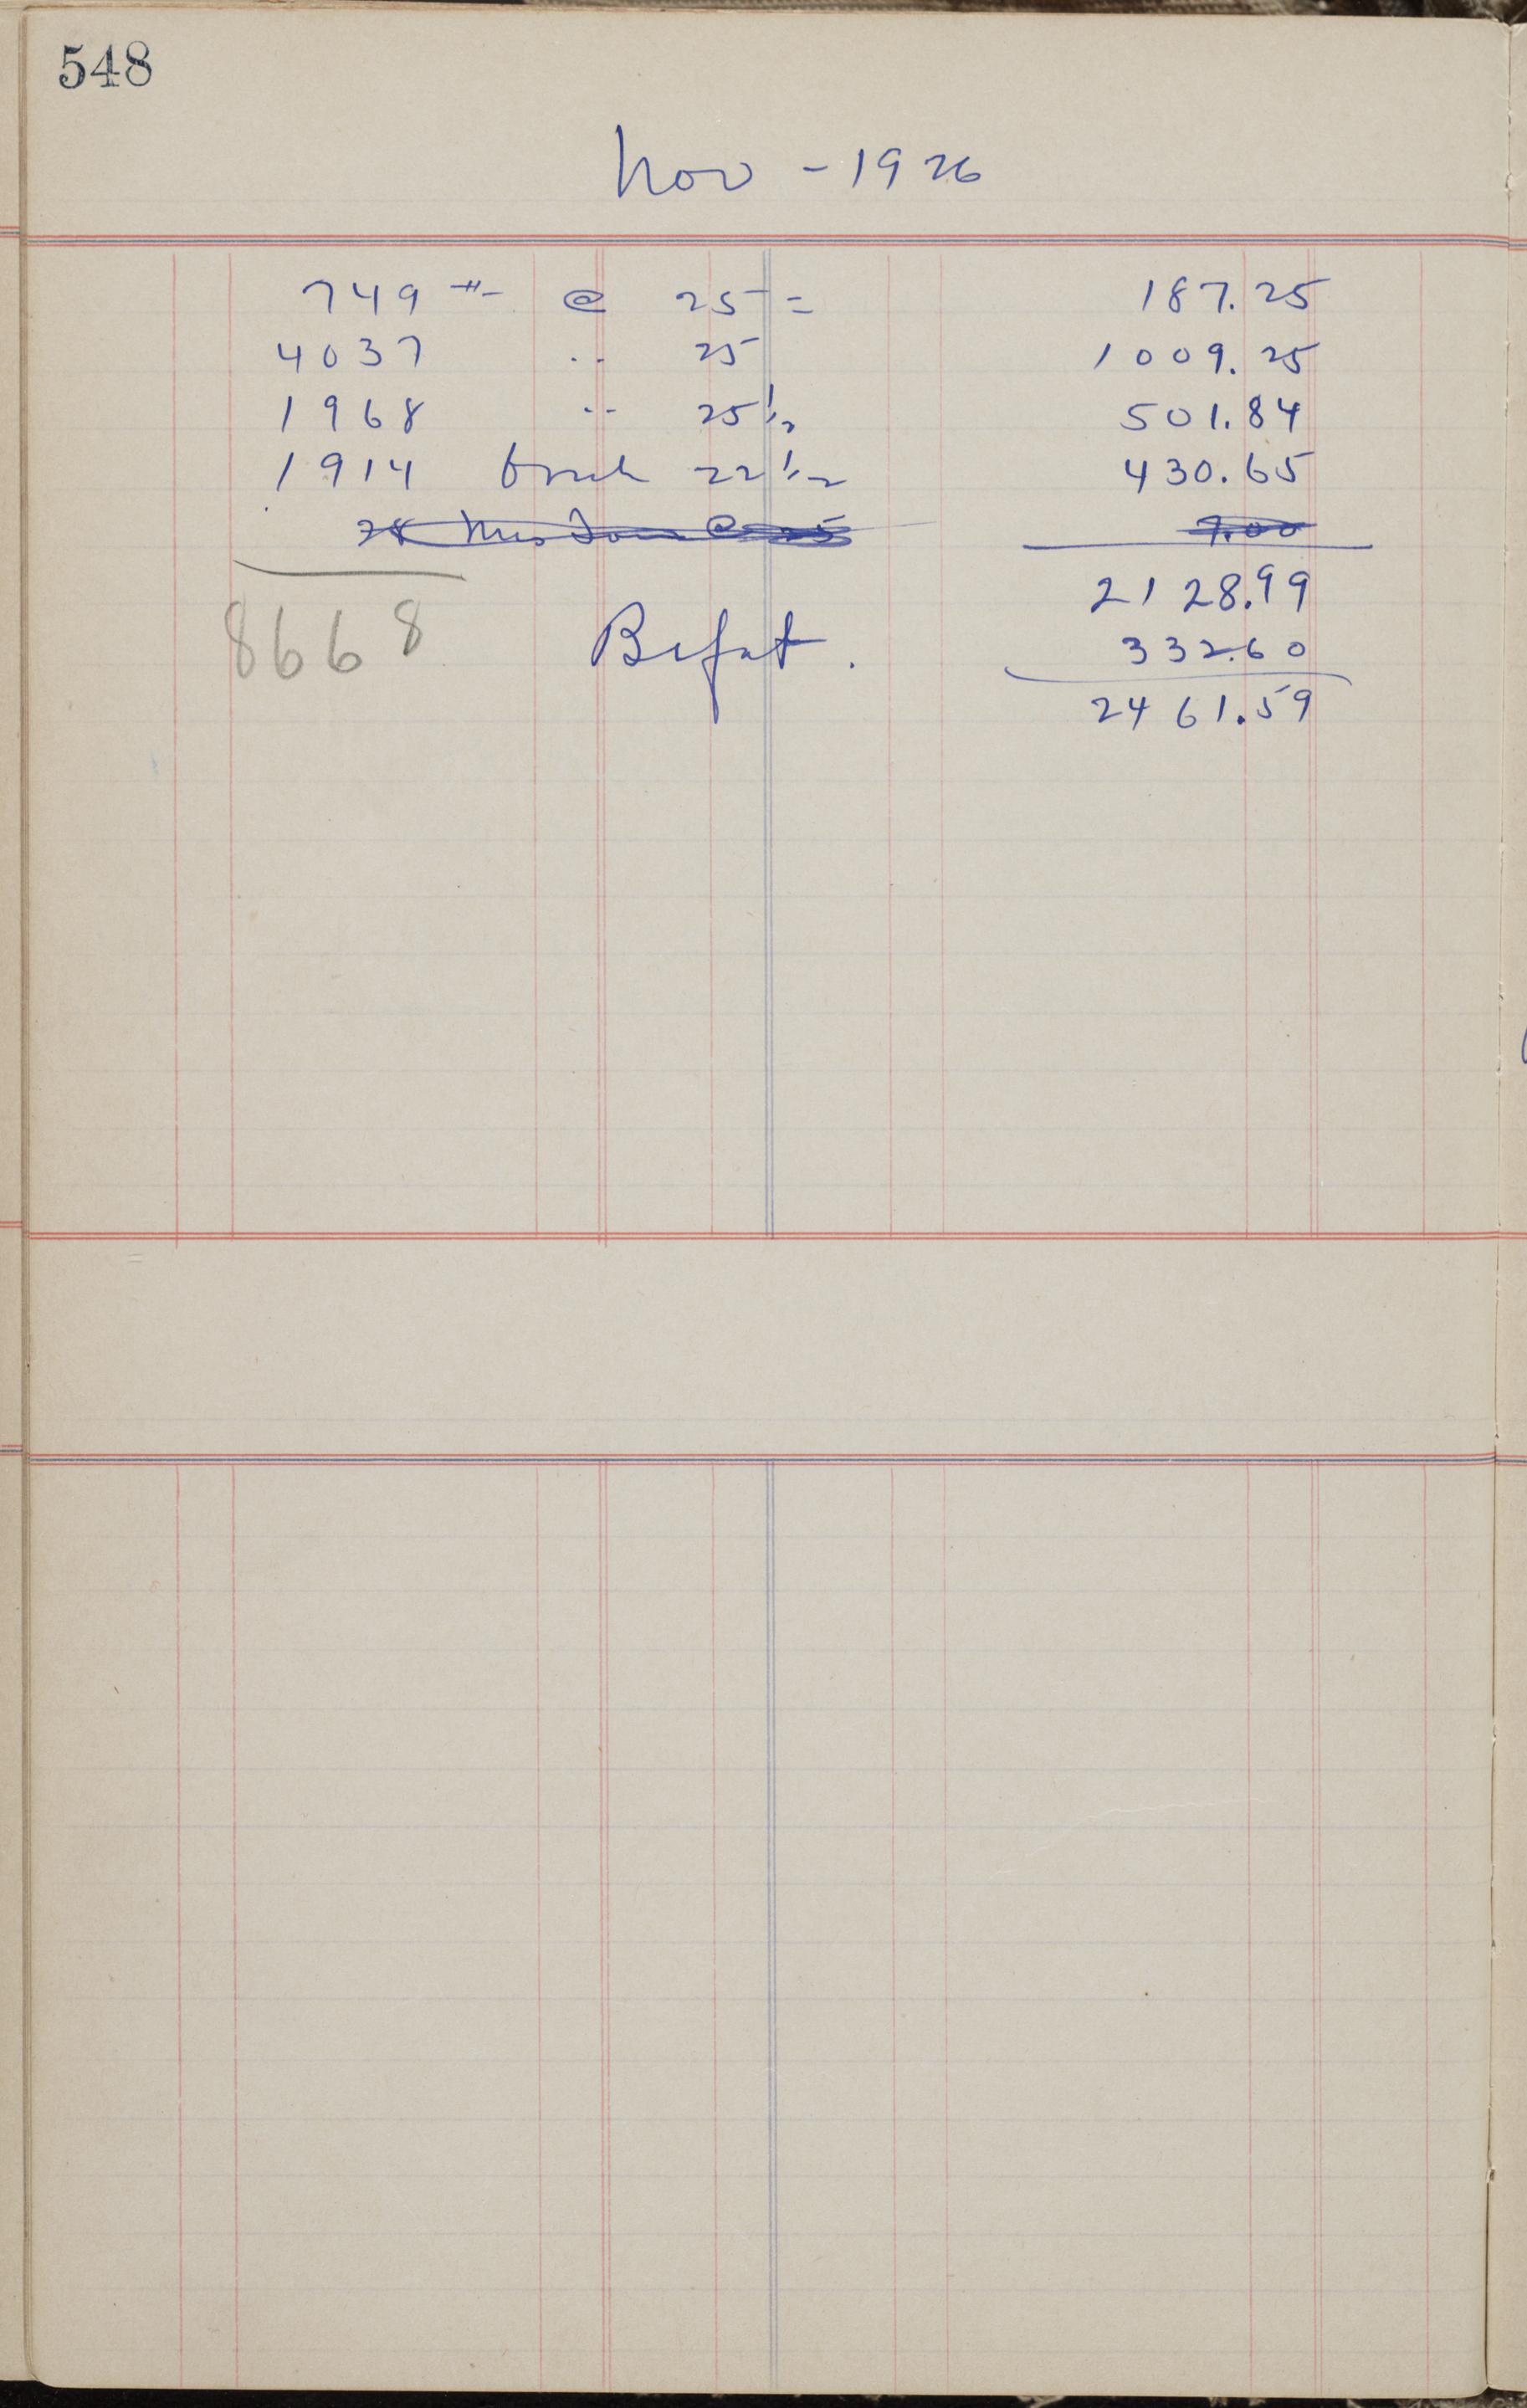 548
Nov - 1926
749 # @ 25 = 187.25
4037 " 25 1009.25
1968 " 25 1/2 501.84
1914 22 1/2 430.65
@ 25 7.00
2128.99
8668 Bifat. 332.60
2461.59